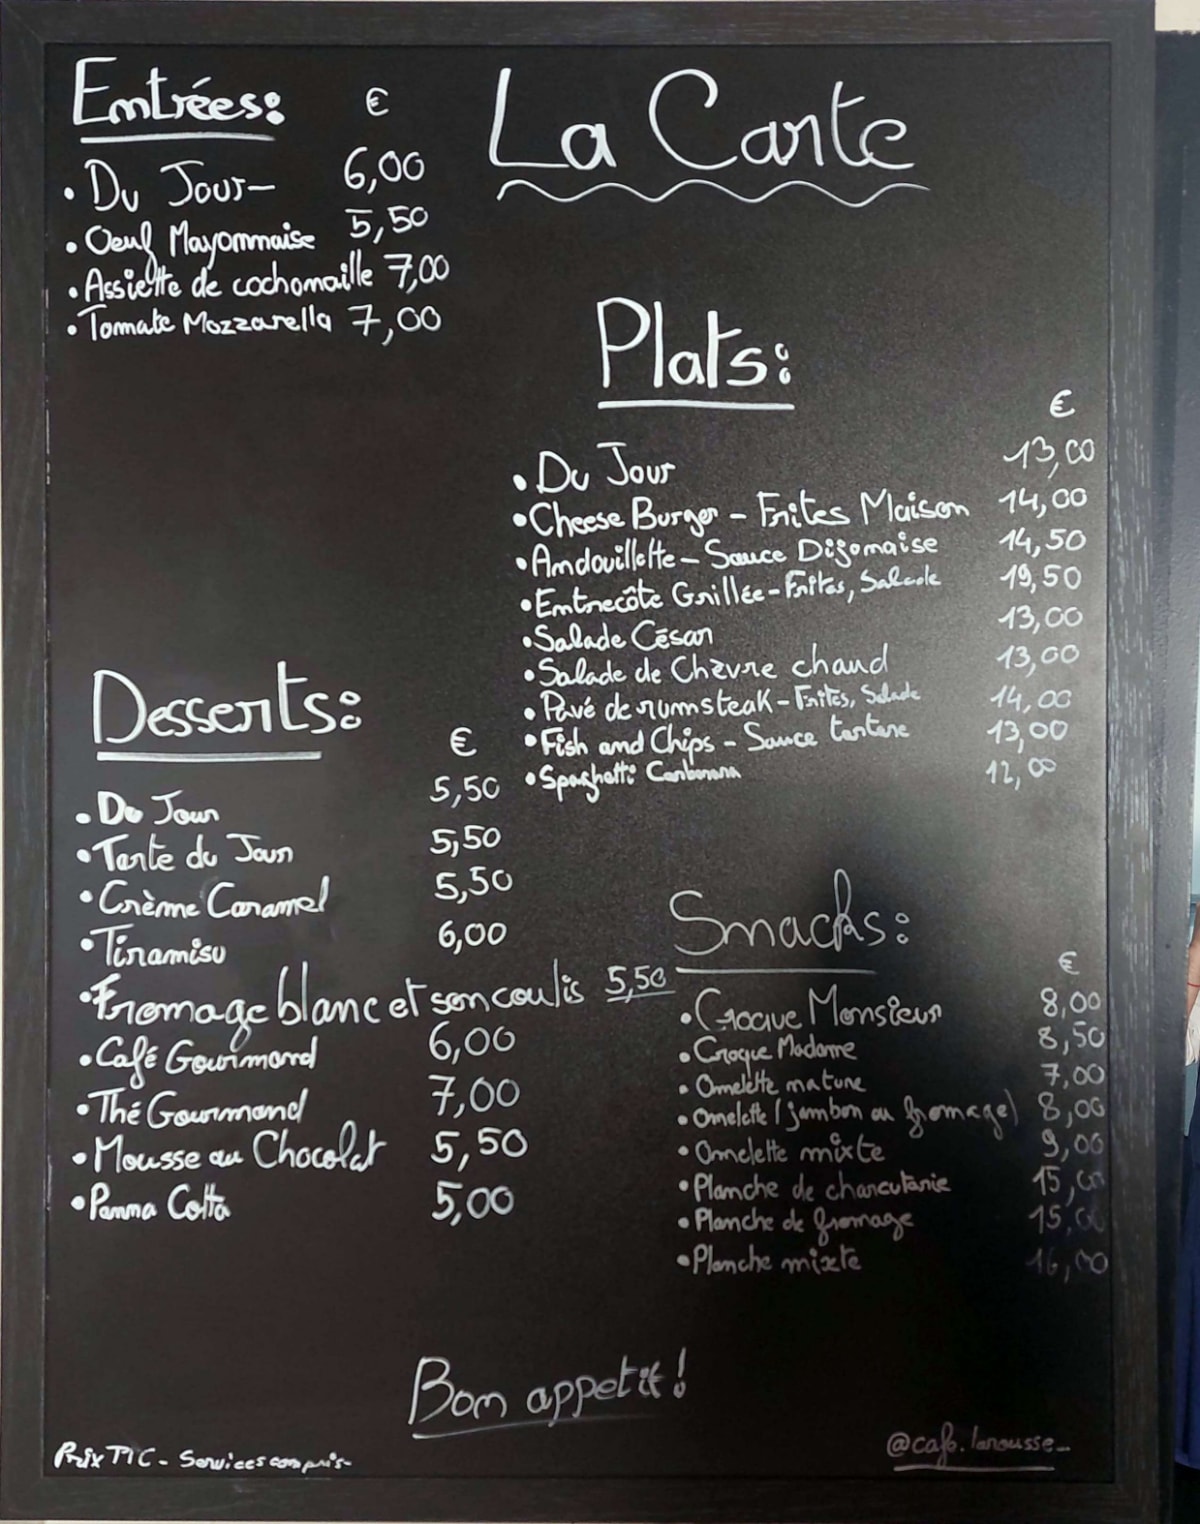 La Carte
Entrées: €
• Du Jour- 6,00
• Oeuf Mayonnaise 5,50
• Assiette de cochonaille 7,00
• Tomate Mozzarella 7,00
Plats:
€
• Du Jour 13,00
• Cheese Burger - Frites Maison 14,00
• Andouillette - Sauce Dijonaise 14,50
• Entrecôte Grillée - Frites, Salade 19,50
• Salade César 13,00
• Salade de Chèvre chaud 13,00
• Pavé de rumsteak - Frites, Salade 14,00
• Fish and Chips - Sauce tartare 13,00
• Spaghetti Carbonara 12,00
Desserts:
€
• Du Jour 5,50
• Tarte du Jour 5,50
• Crème Caramel 5,50
• Tiramisu 6,00
• Fromage blanc et son coulis 5,50
• Café Gourmand 6,00
• Thé Gourmand 7,00
• Mousse au Chocolat 5,50
• Panna Cotta 5,00
Snacks:
€
• Croque Monsieur 8,00
• Croque Madame 8,50
• Omelette nature 7,00
• Omelette (jambon ou fromage) 8,00
• Omelette mixte 9,00
• Planche de charcutarie 15,00
• Planche de fromage 15,00
• Planche mixte 16,00
Bon appetit!
Prix TTC - Services compris-
@cafe.larousse_